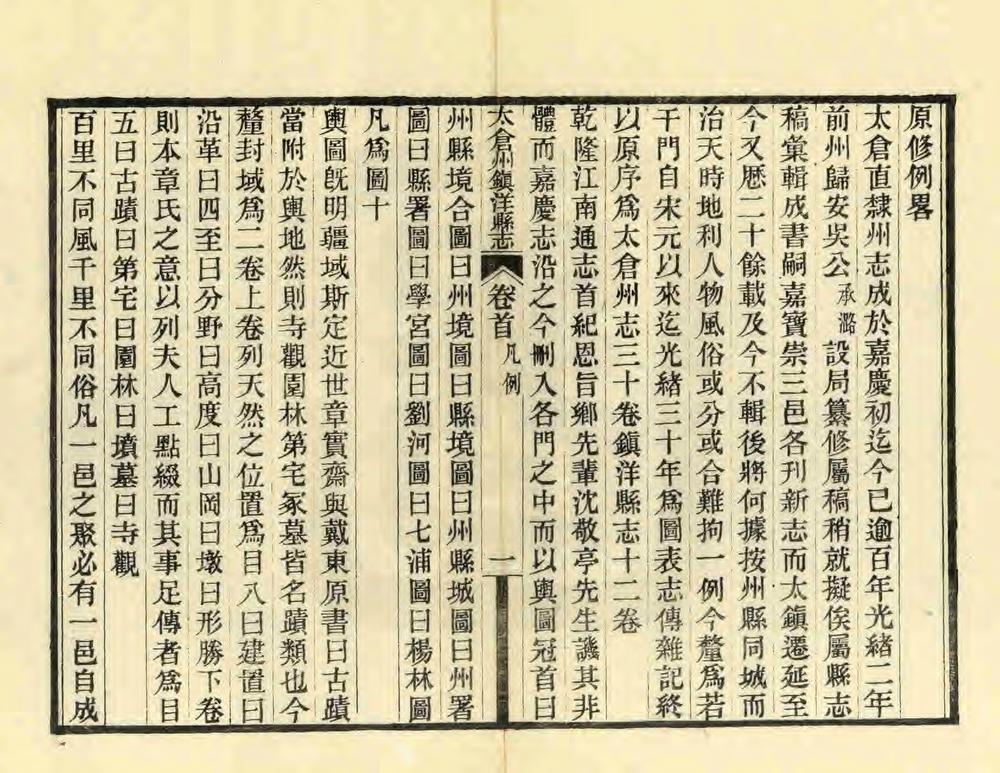 原修例畧
太倉直隸州志成於嘉慶初迄今已逾百年光緒二年
前州歸安吳公承潞設局纂修屬稿稍就擬俟屬縣志
稿彙輯成書嗣嘉寶崇三邑各刊新志而太鎮遷延至
今又歷二十餘載及今不輯後將何據按州縣同城而
治天時地利人物風俗或分或合難拘一例今釐爲若
干門自宋元以來迄光緒三十年爲圖表志傳雜記終
以原序爲太倉州志三十卷鎮洋縣志十二卷
乾隆江南通志首紀恩旨鄉先輩沈敬亭先生譏其非
體而嘉慶志沿之今刪入各門之中而以輿圖冠首曰
太倉州鎮洋縣志 卷首 凡例 一
州縣境合圖曰州境圖曰縣境圖曰州縣城圖曰州署
圖曰縣署圖曰學宮圖曰劉河圖曰七浦圖曰楊林圖
凡爲圖十
輿圖旣明疆域斯定近世章實齋與戴東原書曰古蹟
當附於輿地然則寺觀園林第宅冢墓皆名蹟類也今
釐封域爲二卷上卷列天然之位置爲目八曰建置曰
沿革曰四至曰分野曰高度曰山岡曰墩曰形勝下卷
則本章氏之意以列夫人工點綴而其事足傳者爲目
五曰古蹟曰第宅曰園林曰墳墓曰寺觀
百里不同風千里不同俗凡一邑之聚必有一邑自成